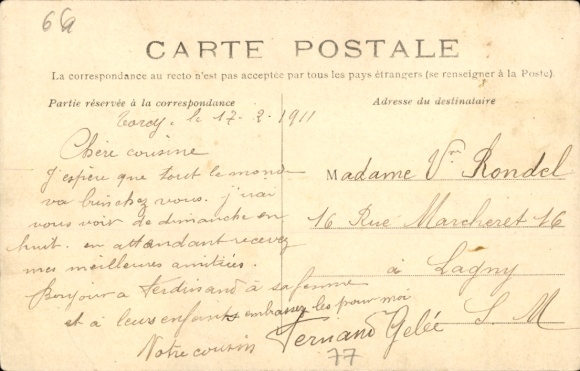 6a
CARTE POSTALE
La correspondance au recto n'est pas acceptée par tous les pays étrangers (se renseigner à la Poste)
Partie réservée à la correspondance
Adresse du destinataire
Torcy. le 17. 2. 1911
Chère cousine
J'espère que tout le monde
va bien chez vous. j'irai
vous voir de dimanche en
huit. en attendant recevez
mes meilleures amitiés.
Bonjour a Ferdinand à sa femme
et à leurs enfants embrassez les pour moi
Votre cousin Fernand Gelée
Madame Vve Rondel
16 Rue Marcheret 16
à Lagny
S. M
77